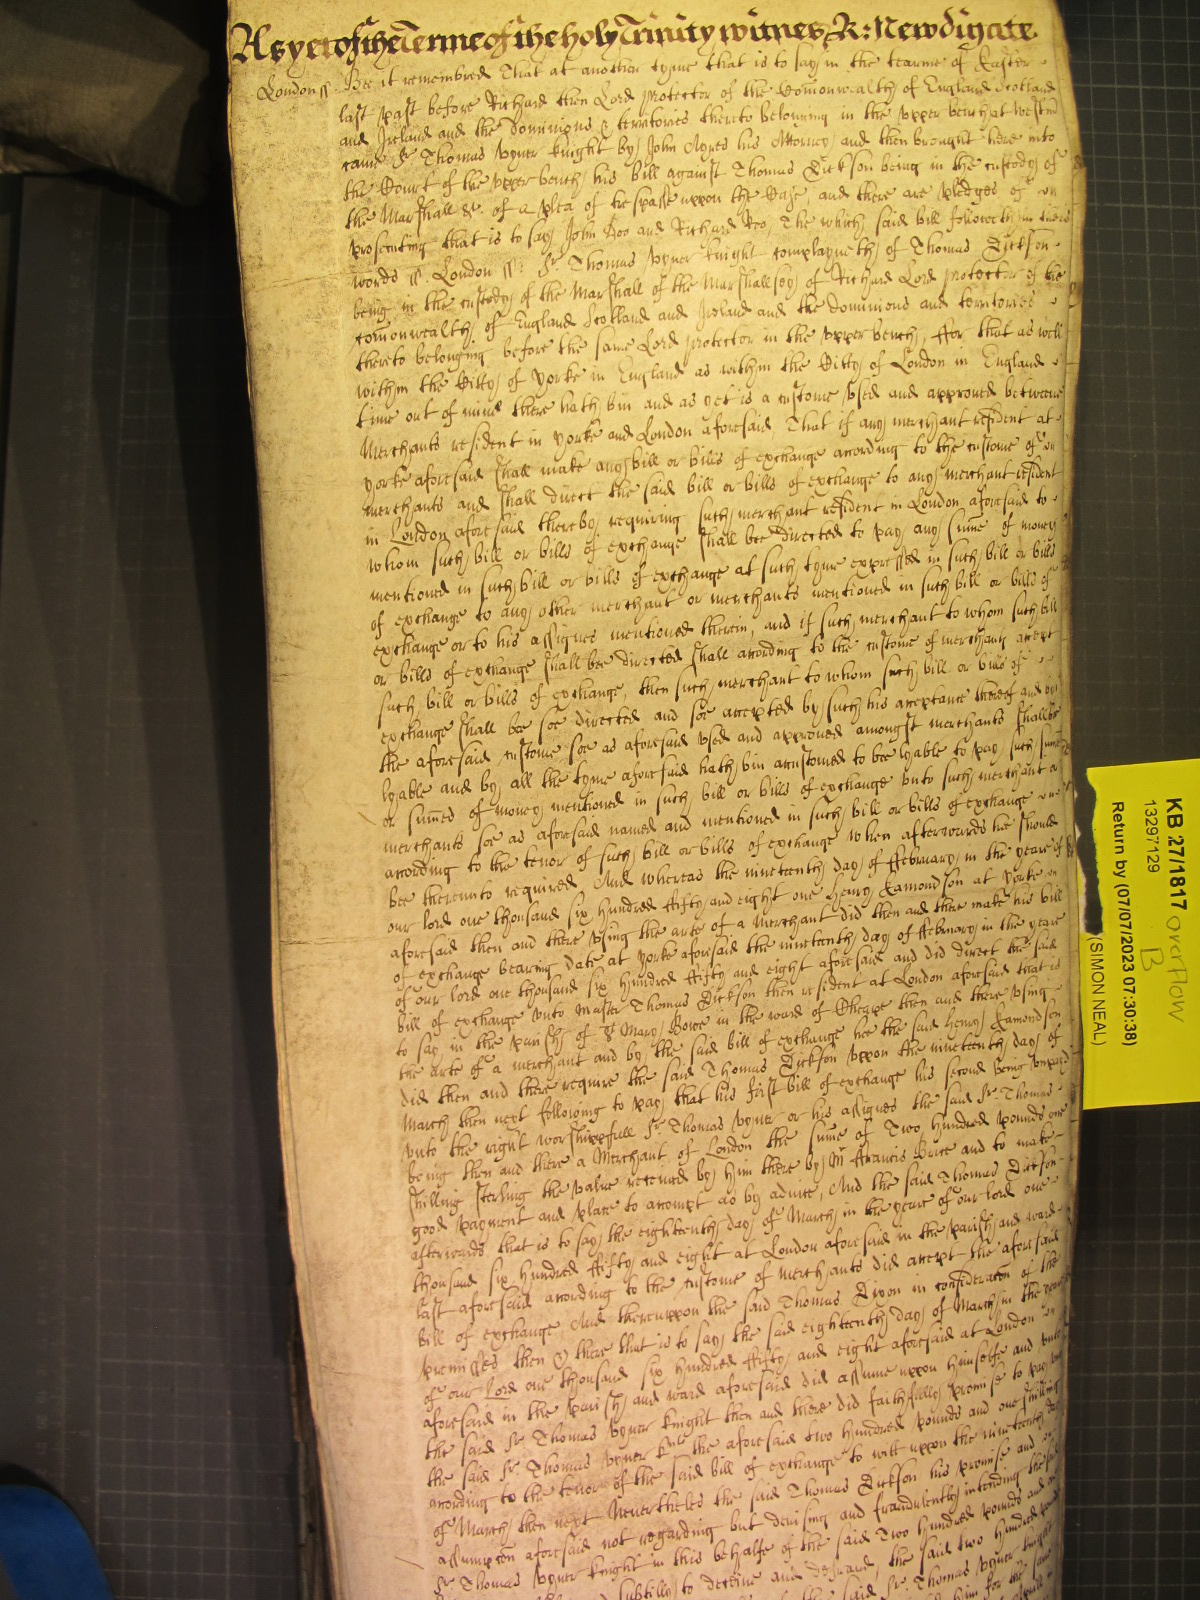 As yet of the Terme of the holy Trinity witnes R: Newdigate
London ss. Bee it remembred That at another tyme that is to say in the tearme of Easter
last past before Richard then Lord Protector of the Comonwealth of England Scotland
and Ireland and the Dominions & territories thereto belonging in the upper bench at Westmr
came Sr Thomas Vyner knight by John Ayres his Attorney and then brought here into
the Court of the upper bench his Bill against Thomas Dickson being in the custody of
the Marshall &c. of a plea of trespasse uppon the Case, and there are pledges of
prosecuting that is to say John Doo and Richard Roo, The which said bill followeth in theis
words ss. London ss. Sr Thomas Vyner knight complayneth of Thomas Dickson
being in the custody of the Marshall of the Marshallsey of Richard Lord Protector of the
Comonwealth of England Scotland and Ireland and the Dominions and territories
thereto belonging before the same Lord Protector in the upper bench, ffor that as well
within the Citty of Yorke in England as within the Citty of London in England
time out of mind there hath bin and as yet is a custome used and approved betweene
Merchants resident in Yorke and London aforesaid That if any merchant resident at
Yorke aforesaid shall make any bill or bills of exchange according to the custome of
merchants and shall direct the said bill or bills of exchange to any merchant resident
in London aforesaid thereby requiring such merchant resident in London aforesaid to
whom such bill or bills of exchange shall bee directed to pay any sume of money
mentioned in such bill or bills of exchange at such tyme expressed in such bill or bills
of exchange to any other merchant or merchants mentioned in such bill or bills of
exchange or to his assignes mentioned therein, and if such merchant to whom such bill
or bills of exchange shall bee directed shall according to the custome of merchants accept
such bill or bills of exchange, then such merchant to whom such bill or bills of
exchange shall bee soe directed and soe accepted by such his acceptance thereof and by
the aforesaid custome soe as aforesaid used and approved amongst merchants shall be
lyable and by all the tyme aforesaid hath bin accustomed to bee lyable to pay such sume
or sumes of money mentioned in such bill or bills of exchange unto such merchant or
merchants soe as aforesaid named and mentioned in such bill or bills of exchange
according to the tenor of such bill or bills of exchange when afterwards hee should
bee thereunto required, And whereas the nineteenth day of ffebruary in the yeare of
our lord one thousand six hundred ffifty and eight one Henry Eamondson at Yorke
aforesaid then and there using the arte of a Merchant did then and there make his bill
of exchange bearing date at Yorke aforesaid the nineteenth day of ffebruary in the yeare
of our lord one thousand six hundred ffifty and eight aforesaid and did direct the said
bill of exchange unto Master Thomas Dickson then resident at London aforesaid that is
to say in the parish of St Mary Bowe in the ward of Cheape then and there using
the arte of a merchant and by the said bill of exchange hee the said Henry Eamondson
did then and there require the said Thomas Dickson uppon the nineteenth day of
March then next following to pay that his first bill of exchange his second being unpaid
unto the right worshippfull Sr Thomas Vyner or his assignes the said Sr Thomas
being then and there a Merchant of London the sume of Two hundred pounds one
shilling sterling the value received by him there by Mr ffrancis Brice and to make
good payment and place to accompt as by advice, And the said Thomas Dickson
afterwards that is to say the eighteenth day of March in the yeare of our lord one
thousand six hundred ffifty and eight at London aforesaid in the parish and ward
last aforesaid according to the custome of merchants did accept the aforesaid
bill of exchange And thereuppon the said Thomas Dixon in consideracon of the
premisses then & there that is to say the said eighteenth day of March in the yeare
of our lord one thousand six hundred ffifty and eight aforesaid at London
aforesaid in the parish and ward aforesaid did assume uppon himselfe and unto
the said Sr Thomas Vyner knight then and there did faithfully promise to pay unto
the said Sr Thomas Vyner knight the aforesaid two hundred pounds and one shilling
according to the tenor of the said bill of exchange to witt uppon the nineteenth day
of March then next Neverthelesse the said Thomas Dickson his promise and
assumpcon aforesaid not regarding but devising and fraudulently intending the said
Sr Thomas Vyner knight in this behalfe of the said Two hundred pounds and
subtilly to deceive and defraud, the said two hundred
the said Sr Thomas Vyner knight
him for the same
KB 27/1817 overflow
13297129 B
Return by (07/07/2023 07:30:38)
(SIMON NEAL)